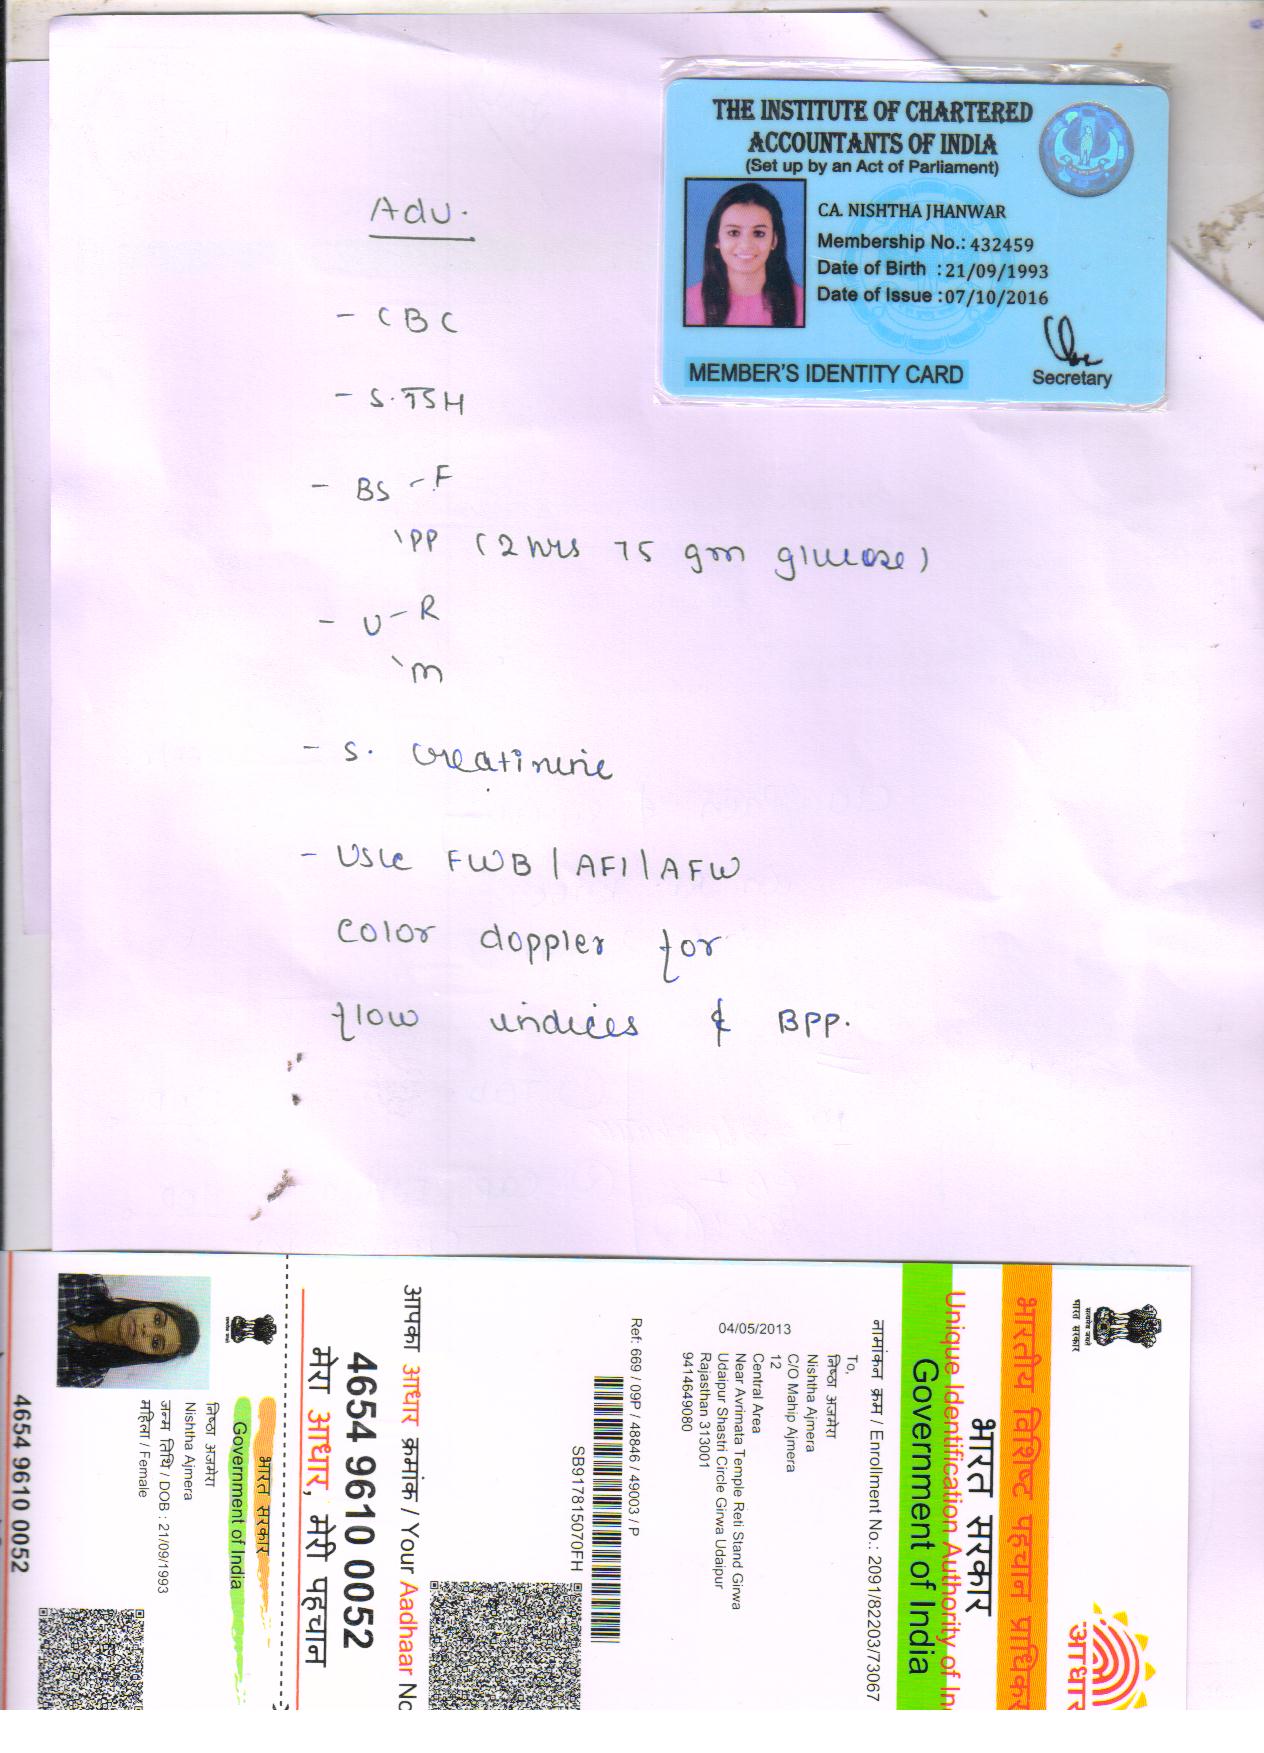 THE INSTITUTE OF CHARTERED
ACCOUNTANTS OF INDIA
(Set up by an Act of Parliament)
CA. NISHTHA JHANWAR
Membership No.: 432459
Date of Birth : 21/09/1993
Date of Issue : 07/10/2016
Secretary
MEMBER'S IDENTITY CARD
Adv.
- CBC
- S. TSH
- BS - F
PP (2 hrs 75 gm glucose)
- U - R
M
- S. creatinine
- USG FWB | AFI | AFW
color doppler for
flow indices & BPP.
सत्यमेव जयते
भारत सरकार
भारतीय विशिष्ट पहचान प्राधिकर
भारत सरकार
Unique Identification Authority of In
Government of India
आधार
नामांकन क्रम / Enrollment No.: 2091/82203/73067
To,
निष्ठा अजमेरा
Nishtha Ajmera
C/O Mahip Ajmera
12
Central Area
Near Avrimata Temple Reti Stand Girwa
Udaipur Shastri Circle Girwa Udaipur
Rajasthan 313001
9414649080
04/05/2013
Ref: 669 / 09P / 48846 / 49003 / P
SB917815070FH
आपका आधार क्रमांक / Your Aadhaar No
4654 9610 0052
मेरा आधार, मेरी पहचान
भारत सरकार
Government of India
निष्ठा अजमेरा
Nishtha Ajmera
जन्म तिथि / DOB : 21/09/1993
महिला / Female
4654 9610 0052